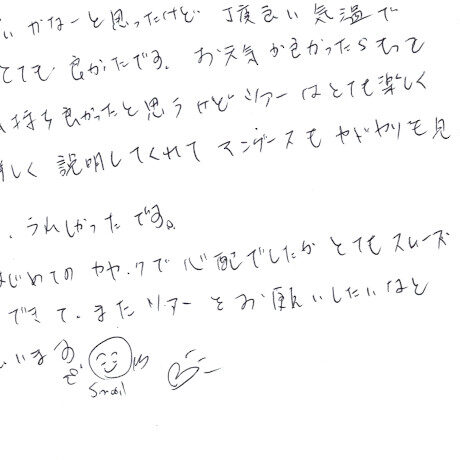 かなーと思ったけど 丁度良い気温で
てても良かったです。お天気が良かったらもって
持ち良かったと思うけどツアーはとても楽しく
しく説明してくれてマングースもヤドカリも見
、うれしかったです。
じめてのカヤックで心配でしたがとてもスムーズ
できて、またツアーをお願いしたいほど
います
smail